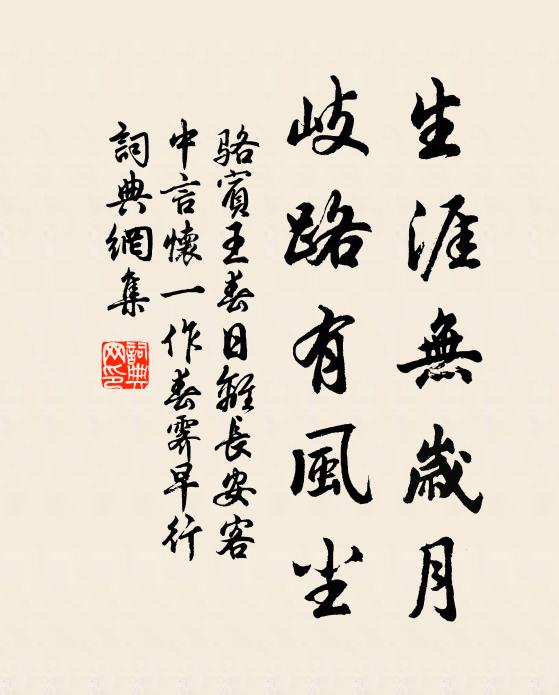 生涯無歲月
歧路有風尘
骆賓王春日離長安客
中言懷一作春霽早行
詞典網集
詞典网印